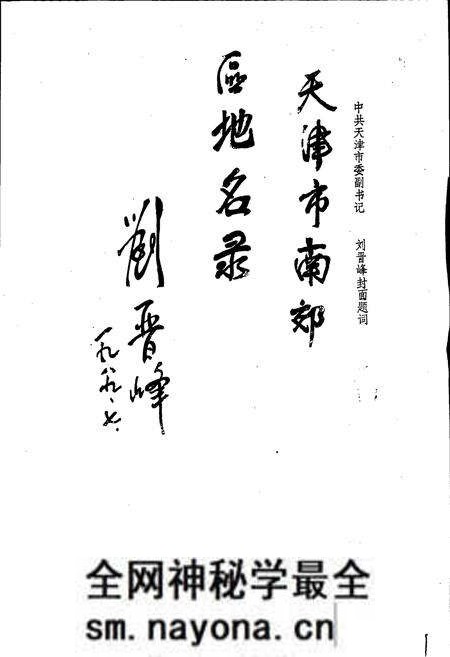 中共天津市委副书记 刘晋峰封面题词
天津市南郊
區地名录
劉晋峰
一九八九、七、
全网神秘学最全
sm.nayona.cn